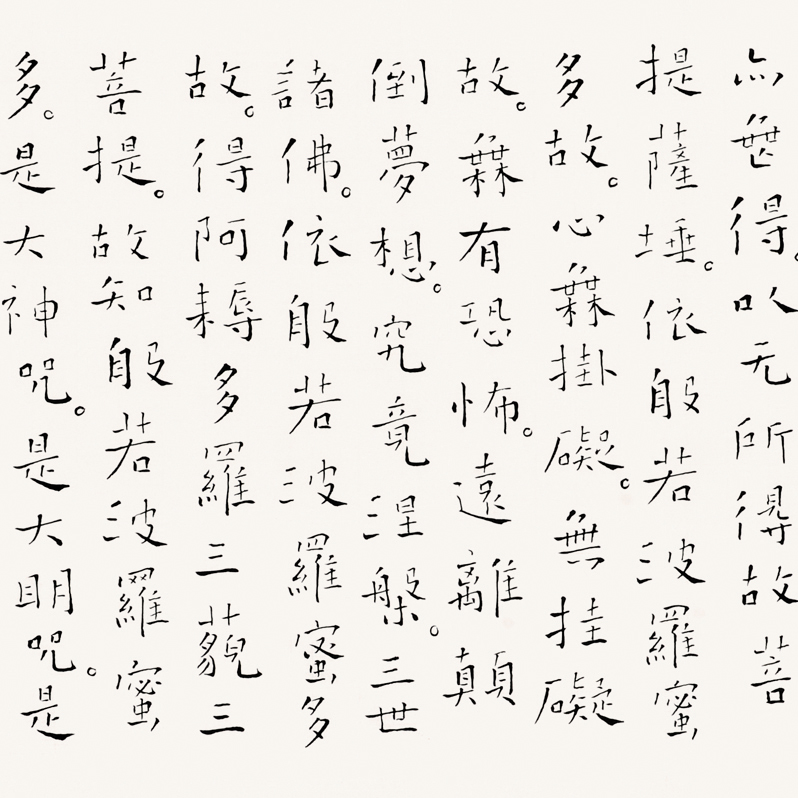 亦無得。以无所得故菩
提薩埵。依般若波羅蜜
多故。心無掛礙。無挂礙
故。無有恐怖。遠離顛
倒夢想。究竟涅槃。三世
諸佛。依般若波羅蜜多
故。得阿耨多羅三藐三
菩提。故知般若波羅蜜
多。是大神咒。是大明咒。是